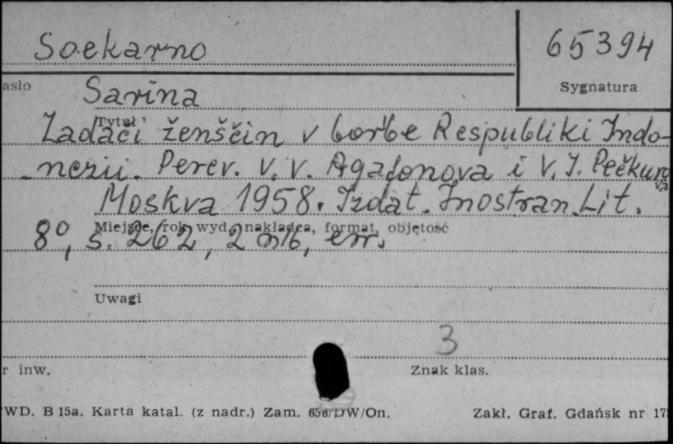 Soekarno
65394
asło
Sygnatura
Sarina
Tytuł
Zadači ženščin v bor'be Respubliki Indo-
nezii. Perev. V. V. Agafonova i V. I. Pečkurova
Moskva 1958. Izdat. Inostran. Lit.
Miejsce, rok wyd., nakładca, format, objętość
8°, s. 262, 2 nlb, err.
Uwagi
3
r inw.
Znak klas.
WD. B 15a. Karta katal. (z nadr.) Zam. 656/DW/On.
Zakł. Graf. Gdańsk nr 17